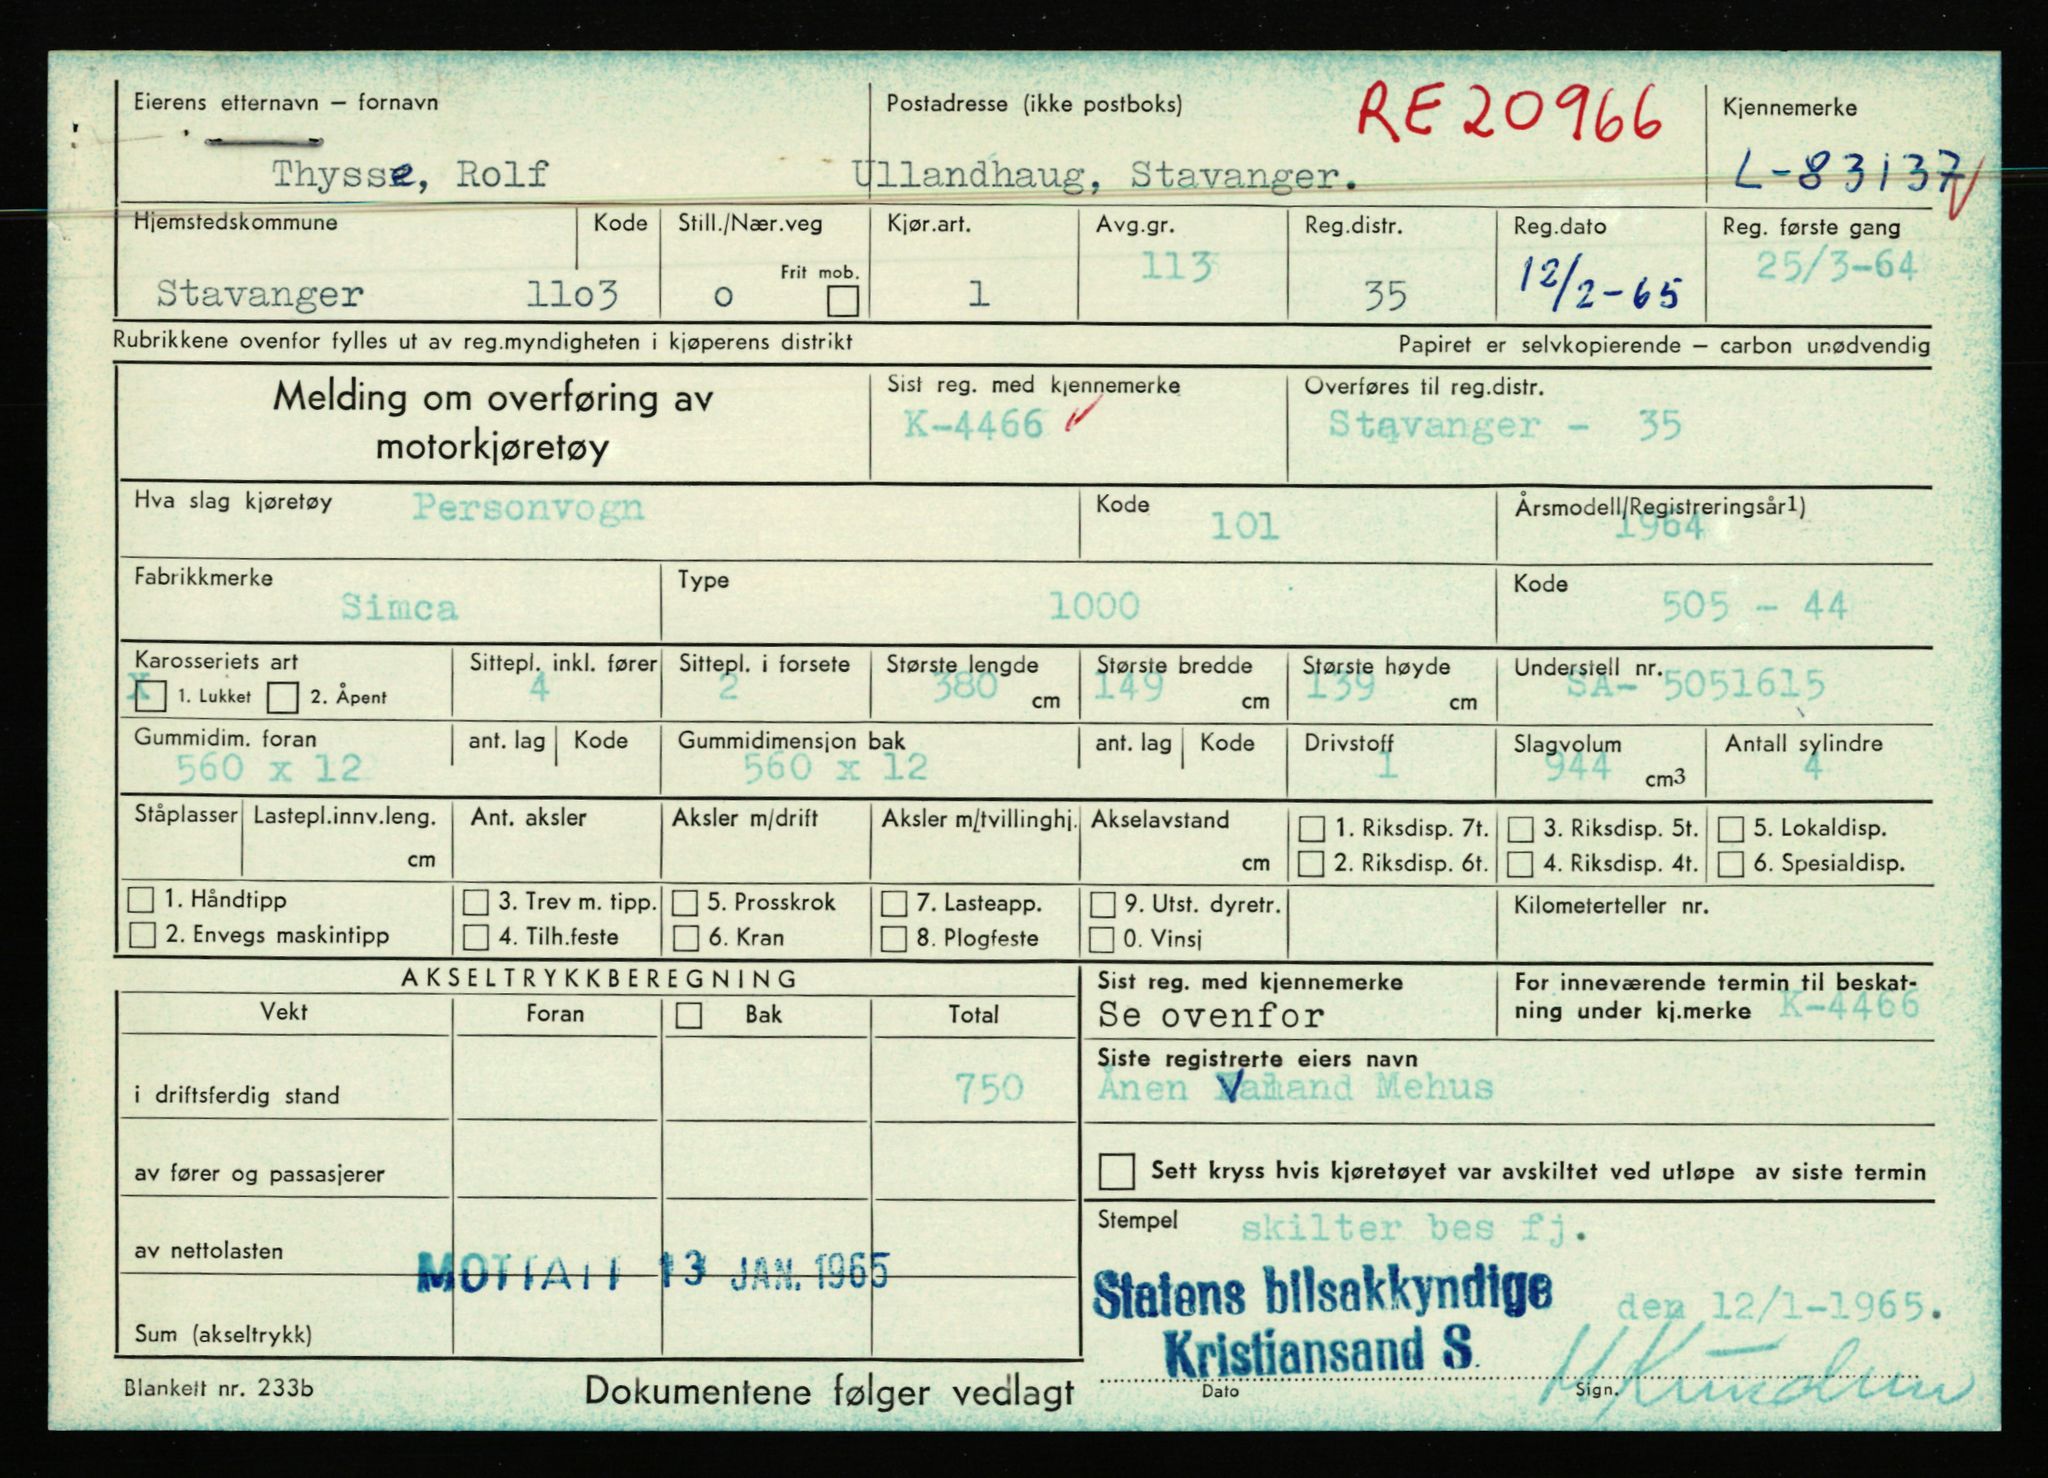 Eierens etternavn – fornavn Postadresse (ikke postboks) RE 20966 Kjennemerke
Thysse, Rolf Ullandhaug, Stavanger. L-83137
Hjemstedskommune Kode Still./Nær.veg Kjør.art. Avg.gr. Reg.distr. Reg.dato Reg. første gang
Stavanger 11o3 o Frit mob. 1 113 35 12/2-65 25/3-64
Rubrikkene ovenfor fylles ut av reg.myndigheten i kjøperens distrikt Papiret er selvkopierende – carbon unødvendig
Melding om overføring av motorkjøretøy Sist reg. med kjennemerke Overføres til reg.distr.
K-4466 Stavanger - 35
Hva slag kjøretøy Personvogn Kode 101 Årsmodell/Registreringsår1) 1964
Fabrikkmerke Simca Type 1000 Kode 505 - 44
Karosseriets art Sittepl. inkl. fører Sittepl. i forsete Største lengde Største bredde Største høyde Understell nr.
X 1. Lukket 2. Åpent 4 2 380 cm 149 cm 139 cm SA- 5051615
Gummidim. foran ant. lag Kode Gummidimensjon bak ant. lag Kode Drivstoff Slagvolum Antall sylindre
560 x 12 560 x 12 1 944 cm3 4
Ståplasser Lastepl.innv.leng. Ant. aksler Aksler m/drift Aksler m/tvillinghj. Akselavstand 1. Riksdisp. 7t. 3. Riksdisp. 5t. 5. Lokaldisp.
cm cm 2. Riksdisp. 6t. 4. Riksdisp. 4t. 6. Spesialdisp.
1. Håndtipp 3. Trev m. tipp. 5. Prosskrok 7. Lasteapp. 9. Utst. dyretr. Kilometerteller nr.
2. Envegs maskintipp 4. Tilh.feste 6. Kran 8. Plogfeste 0. Vinsj
AKSELTRYKKBEREGNING Sist reg. med kjennemerke For inneværende termin til beskat-
Vekt Foran Bak Total Se ovenfor ning under kj.merke K-4466
Siste registrerte eiers navn
i driftsferdig stand 750 Ånen Mehus
av fører og passasjerer Sett kryss hvis kjøretøyet var avskiltet ved utløpe av siste termin
Stempel skilter bes fj.
av nettolasten
MOTTATT 13 JAN. 1965 Statens bilsakkyndige den 12/1-1965.
Sum (akseltrykk) Kristiansand S.
Blankett nr. 233b Dokumentene følger vedlagt Dato Sign.